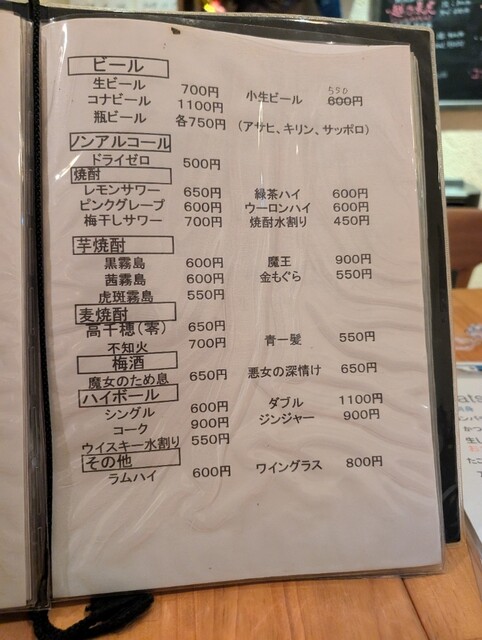 ビール
生ビール 700円 小生ビール 550 600円
コナビール 1100円
瓶ビール 各750円 (アサヒ、キリン、サッポロ)
ノンアルコール
ドライゼロ 500円
焼酎
レモンサワー 650円 緑茶ハイ 600円
ピンクグレープ 600円 ウーロンハイ 600円
梅干しサワー 700円 焼酎水割り 450円
芋焼酎
黒霧島 600円 魔王 900円
茜霧島 600円 金もぐら 550円
虎斑霧島 550円
麦焼酎
高千穂(零) 650円
不知火 700円 青一髪 550円
梅酒
魔女のため息 650円 悪女の深情け 650円
ハイボール
シングル 600円 ダブル 1100円
コーク 900円 ジンジャー 900円
ウイスキー水割り 550円
その他
ラムハイ 600円 ワイングラス 800円